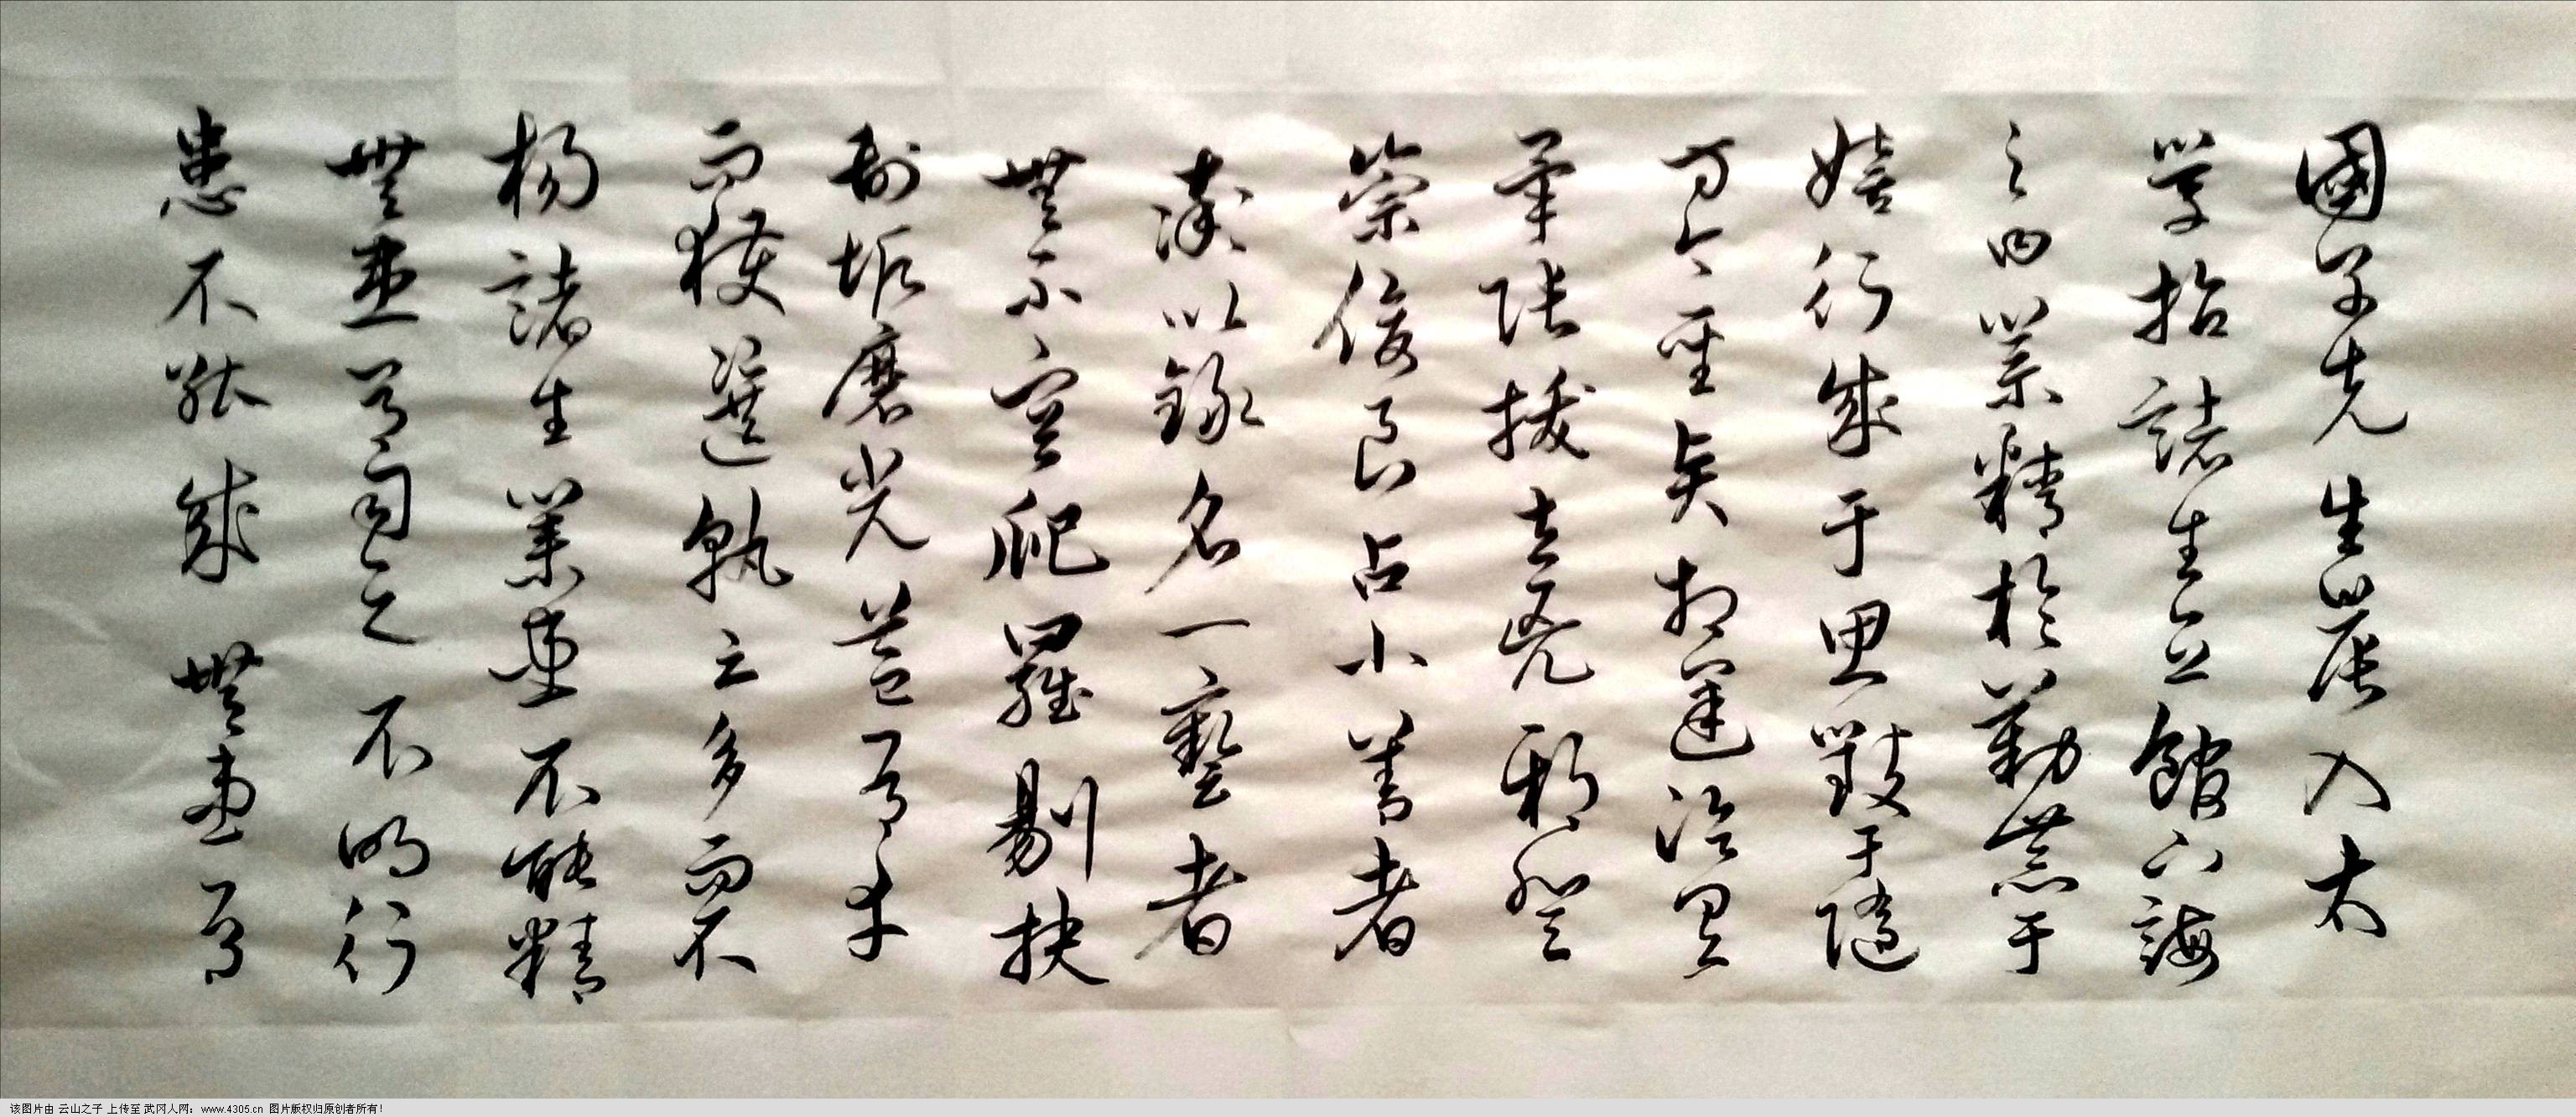 國子先生晨入太
學招諸生立館下誨
之曰業精於勤荒于
嬉行成于思毀于隨
方今聖賢相逢治具
畢張拔去兇邪登
崇俊良占小善者
率以錄名一藝者
無不庸爬羅剔抉
刮垢磨光蓋有幸
而獲選孰云多而不
揚諸生業患不能精
無患有司之不明行
患不能成無患有
该图片由 云山之子 上传至 武冈人网：www.4305.cn 图片版权归原创者所有！